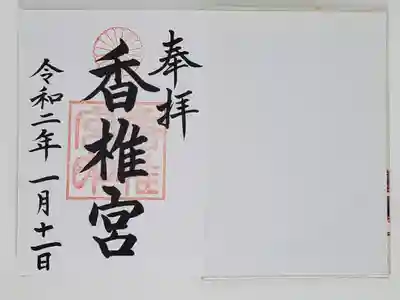 奉拝
香椎宮
令和二年一月十一日